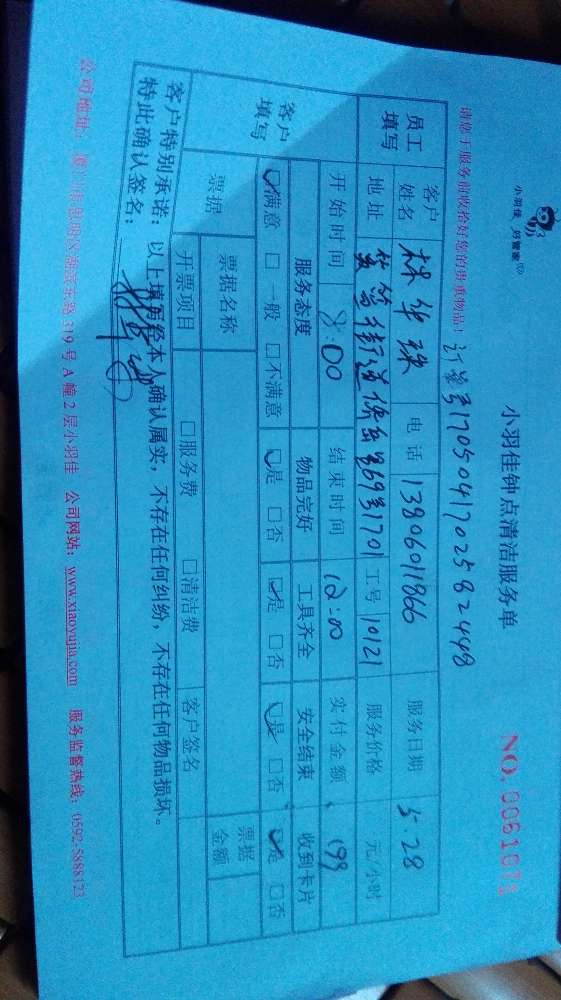 小羽佳 好管家
小羽佳钟点清洁服务单
NO.0061071
请您于服务前收拾好您的贵重物品！
订单号17050417025824498
员工填写 客户姓名 林华珠 电话 13806011866 服务日期 5.28
地址 筼筜街道 69号1701 工号 10121 服务价格 元/小时
客户填写 开始时间 8:00 结束时间 12:00 实付金额 199
服务态度 物品完好 工具齐全 安全结束 收到卡片
☑满意 □一般 □不满意 ☑是 □否 ☑是 □否 ☑是 □否 ☑是 □否
票据 票据名称 票据金额
开票项目 □服务费 □清洁费 客户签名
客户特别承诺：以上填写经本人确认属实，不存在任何纠纷，不存在任何物品损坏。
特此确认签名：
公司地址：厦门市思明区湖滨东路319号A幢2层小羽佳 公司网站：www.xiaoyujia.com 服务监督热线：0592-5888123